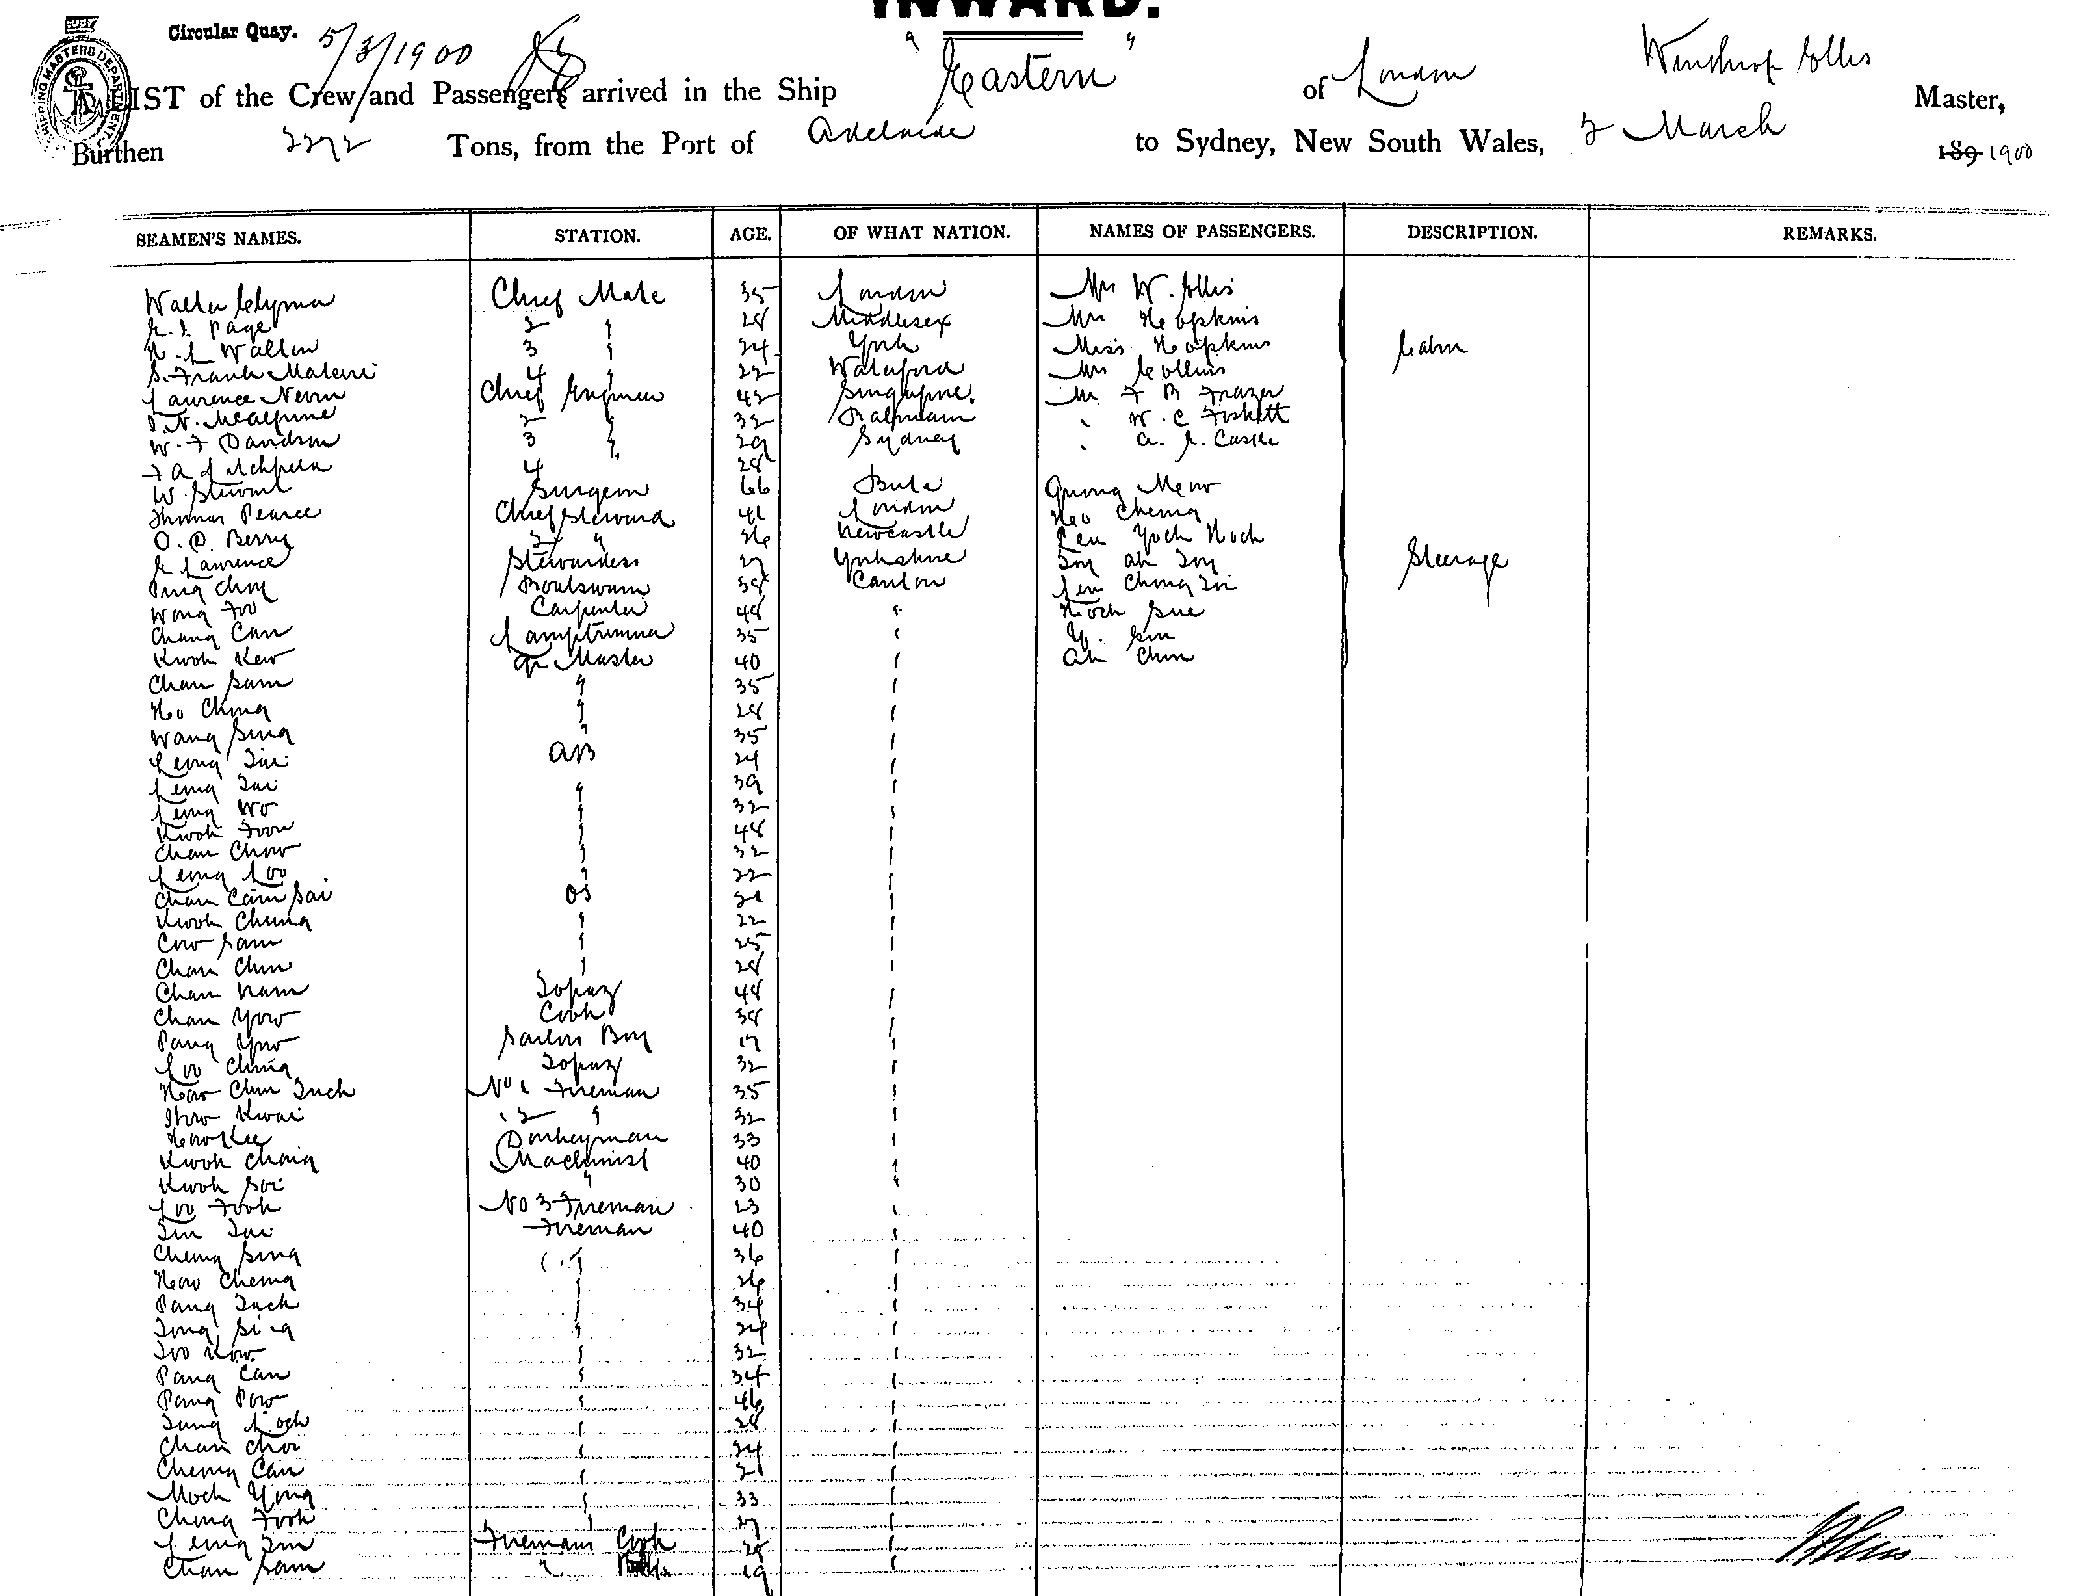 INWARD.
Circular Quay. 5/3/1900
SHIPPING MASTERS DEPARTMENT
A LIST of the Crew and Passengers arrived in the Ship "Eastern" of London Winthrop Ellis Master,
Burthen 2272 Tons, from the Port of Adelaide to Sydney, New South Wales, 3 March 189 1900
SEAMEN'S NAMES. STATION. AGE. OF WHAT NATION. NAMES OF PASSENGERS. DESCRIPTION. REMARKS.
Walter Clymer Chief Mate 35 London Mrs W. Ellis
Page 2 " 28 Middlesex Mrs Hopkins
Wallen 3 " 24 York Miss Hopkins Cabin
S. Frank 4 " 22 Waterford Mrs Collins
Laurence Nevin Chief Engineer 42 Singapore. Mr F B Frazer
McAlpine 2 " 32 Balmain " W. C Foskett
W. F Davidson 3 " 29 Sydney " A. E. Castle
F A 4 28
W. Stewart Surgeon 66 Bute Quong Meow
Thomas Pearce Chief Steward 41 London Hoo Cheong
O. C. Berry 2 " 26 Newcastle Leu Yock Hock
E Lawrence Stewardess 27 Yorkshire Soy ah Soy Steerage
Ping Choy Boatswain 38 Canton Leu Chong Soi
Wong Foo Carpenter 48 " Hock Sue
Chang Can Lamptrimmer 35 " Y. Sin
Kwok Kew Qr Master 40 " Ah Chin
Chan Sam " 35 "
Ho Ching " 28 "
Wang Sing " 35 "
Leong Tai AB 24 "
Leong Tai " 39 "
Leong Wo " 32 "
Kwok Foon " 48 "
Chan Chow " 32 "
Leong Loo " 22 "
Chan Cam Sai OS 21 "
Kwok Cheung " 22 "
Cow Sam " 25 "
Chan Chin " 28 "
Chan Nam Topaz 48 "
Chan Yow Cook 38 "
Pang Yow Sailors Boy 17 "
Loo Ching Topaz 32 "
How Chin Tuck No 1 Fireman 35 "
How Kwai " 2 " 32 "
How Kee Donkeyman 33 "
Kwok Chong Machinist 40 "
Kwok Soi " 30 "
Loo Fook No 3 Fireman 23 "
Sin Tai Fireman 40 "
Cheong Sing " 36 "
How Cheong " 26 "
Pang Tuck " 34 "
Tong Sing " 24 "
Too Kow " 32 "
Pang Can " 34 "
Pang Pow " 46 "
Tung Lock " 28 "
Chan Choi " 24 "
Cheong Can " 21 "
Mock Yong " 33 "
Chong Fook " 27 "
Leong Sin Firemans Cook 28 "
Chan Sam " 19 "